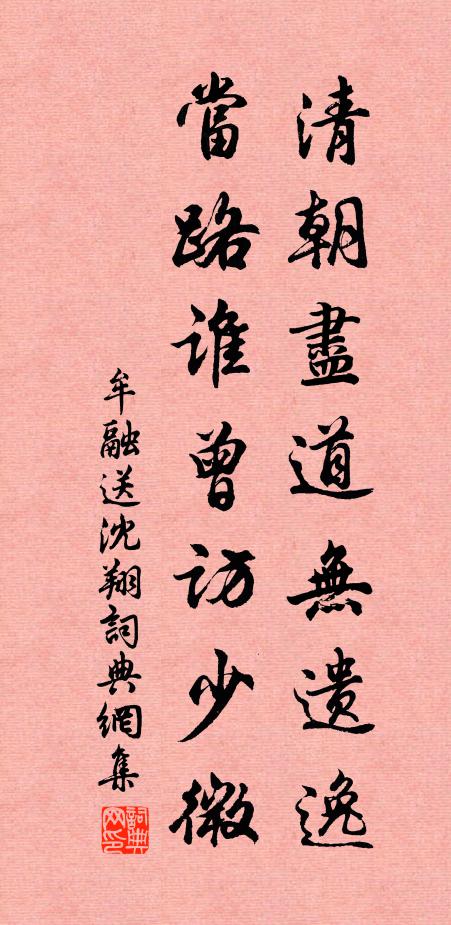 清朝盡道無遺逸
當路誰曾訪少微
牟融送沈翔詞典網集
詞典网印